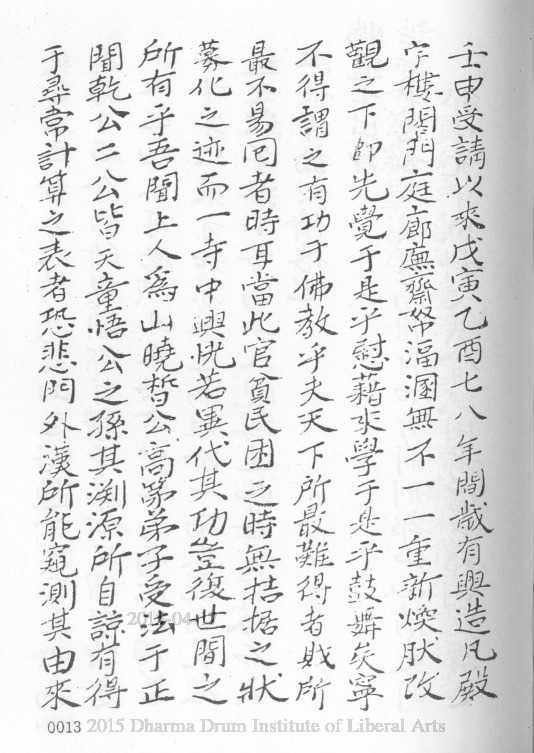 壬申受請以來戊寅乙酉七八年間歲有興造凡殿
宇樓閣門庭廊廡齋帑湢溷無不一一重新煥肰改
觀之下卽先覺于是乎慰藉來學于是乎鼓舞矣寧
不得謂之有功于佛教乎夫天下所最難得者財所
最不易囘者時耳當此官貧民困之時無拮据之狀
募化之迹而一寺中興恍若異代其功豈復世間之
所有乎吾聞上人爲山曉晳公高第弟子受法于正
聞乾公二公皆天童悟公之孫其淵源所自諒有得
于尋常計算之表者恐悲門外漢所能窺測其由來
0013 2015 Dharma Drum Institute of Liberal Arts